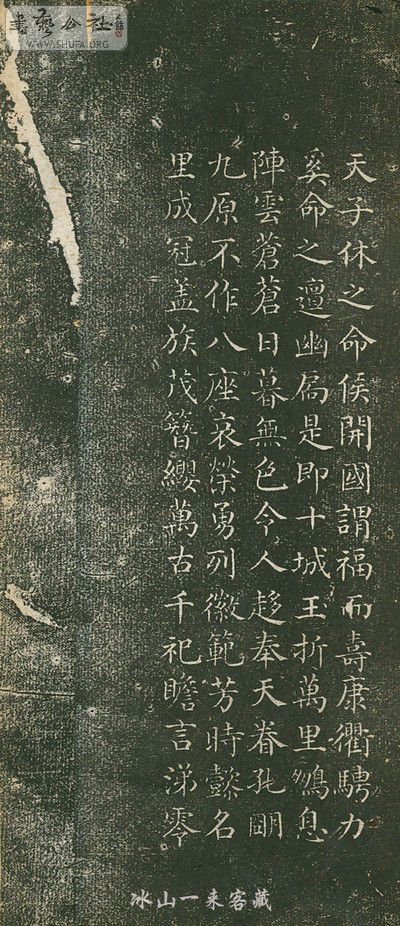 書藝公社
WWW.SHUFA.ORG
天子休之命侯開國謂福而壽康衢騁力
奚命之邅幽扃是即十城玉折萬里鵾息
陣雲蒼蒼日暮無色今人趍奉天眷孔
九原不作八座哀榮勇列徽範芳時懿名
里成冠盖族茂簪纓萬古千祀瞻言涕零
冰山一来客藏